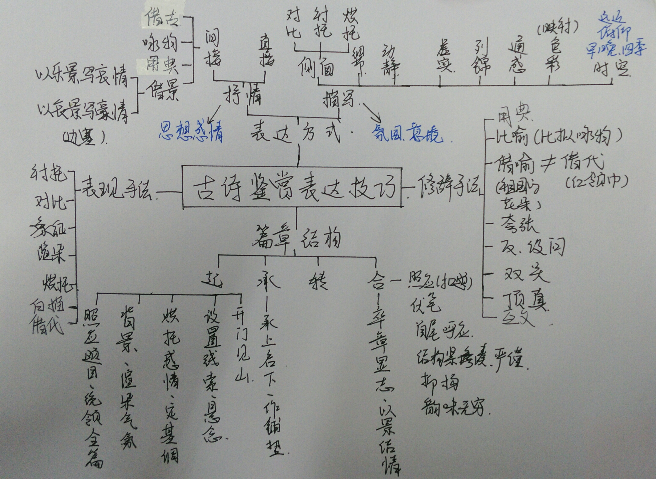 借古
咏物
用典
借景
间接
直接
抒情
以乐景写哀情
以哀景写豪情
(边塞)
思想感情
对比
衬托
烘托
侧面
动静
虚实
列锦
通感
(映衬)
色彩
远近
俯仰
早晚、四季
时空
描写
氛围意境
表达方式
古诗鉴赏表达技巧
表现手法
衬托
对比
象征
渲染
烘托
白描
借代
修辞手法
用典
比喻(比拟咏物)
借喻≠借代
(祖国的
花朵)
(红领巾)
夸张
反、设问
双关
顶真
互文
篇章结构
起
承
转
合
照应题目、统领全篇
背景、渲染气氛
烘托感情、定基调
设置线索、悬念
开门见山
承上启下、作铺垫
卒章显志、以景结情
伏笔
首尾呼应
结构紧凑、严谨
抑扬
韵味无穷